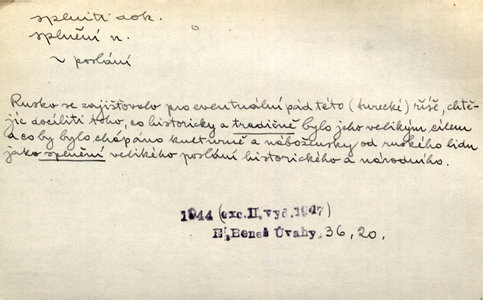 splniti dok.
splnění n.
v poslání
Rusko se zajišťovalo pro eventuální pád této (turecké) říše, chtě-
jíc docíliti toho, co historicky a tradičně bylo jeho velikým cílem
a co by bylo chápáno kulturně a nábožensky od ruského lidu
jako splnění velikého poslání historického a národního.
1944 (exc.II, vyč.1947)
E. Beneš Úvahy, 36, 20.